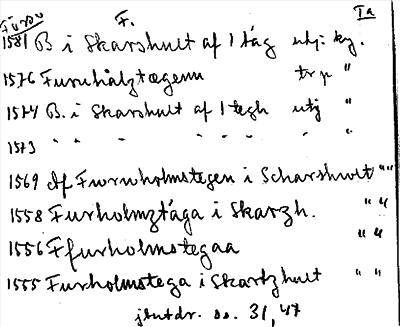 F. Ia
1581 B i Skarshult af 1 tåg utj. kg.
1576 Furuhålztægenn "
1574 B. i Skarshult af 1 tegh utj "
1573 " " " " " " "
1569 Af Furuholmstegen i Scharshult " "
1558 Furholmztåga i Skarzh. " "
1556 Ffurholmstegaa " "
1555 Furholmstega i Skartzhult " "
jbutdr. ss. 31, 47